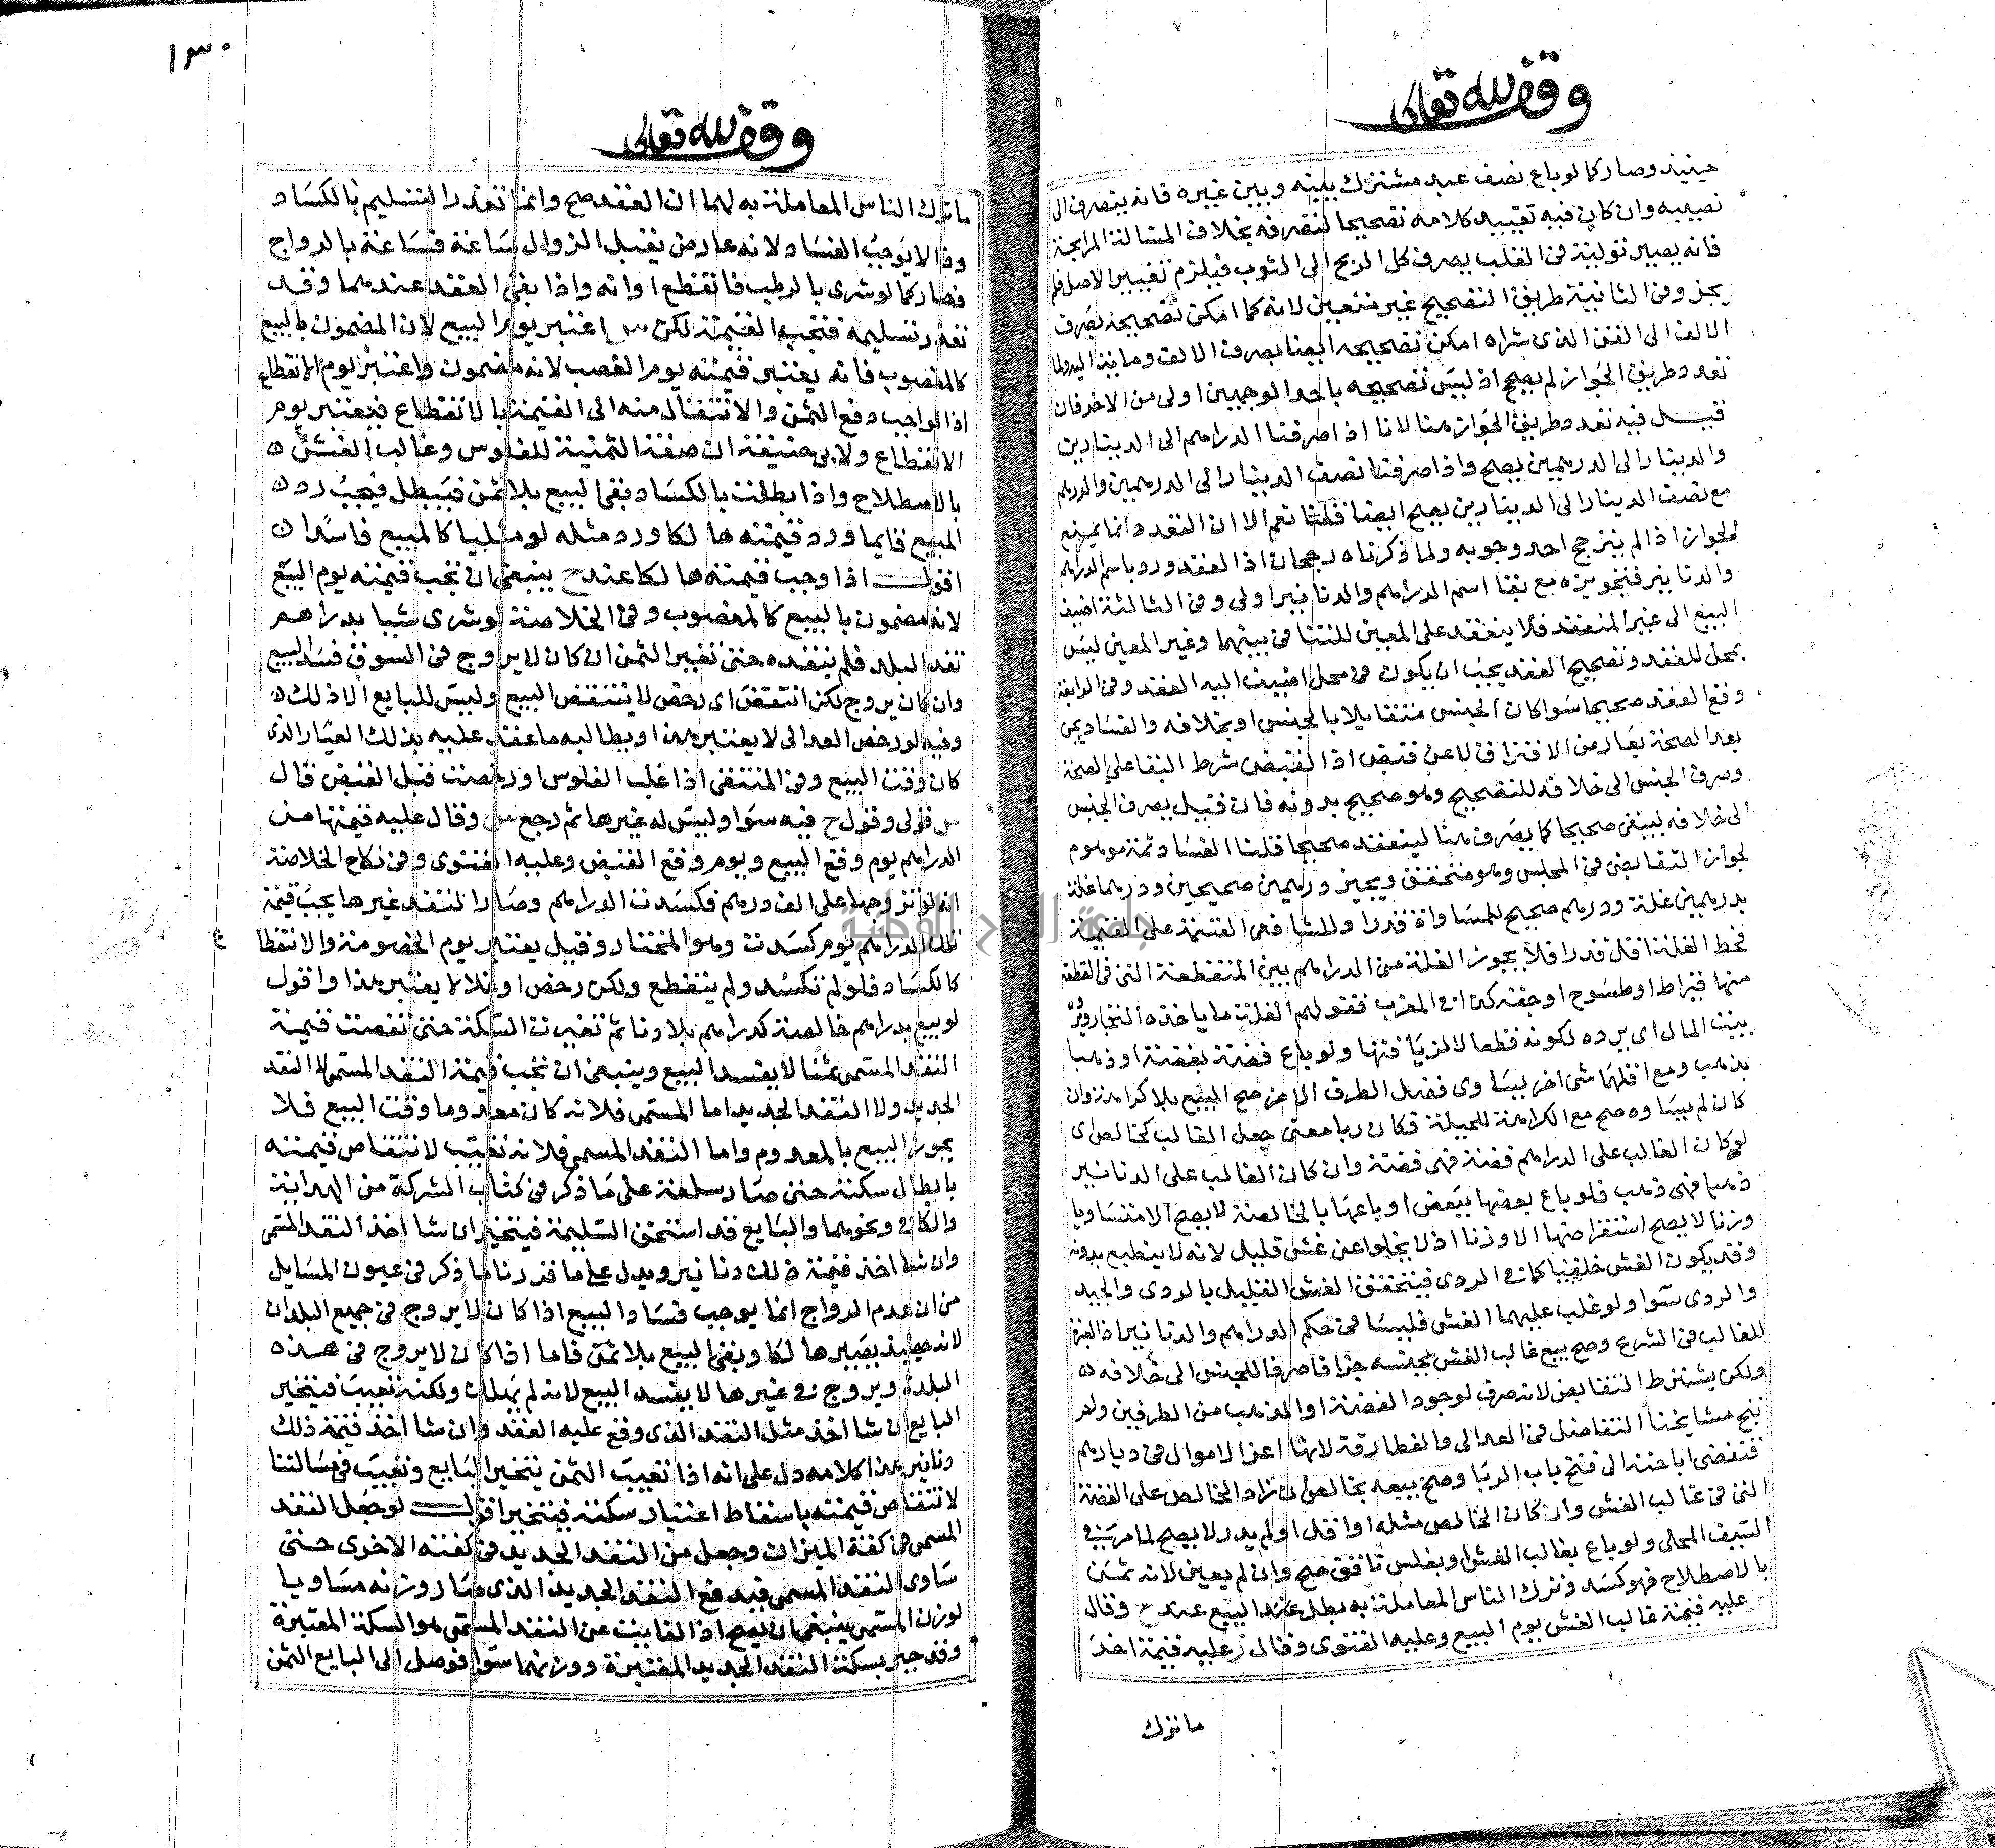 وقف لله تعالى
حينيذ وصار كما لو باع نصف عبد مشترك بينه وبين غيره فانه ينصرف الى
نصيبه وان كان فيه تقييد كلامه تصحيحا لتصرفه بخلاف المسالة المرابحة
فانه يصير تولية في القلب بصرف كل الربح الى الثوب فيلزم تغيير الاصل فلم
يجز وفي الثانية طريق التصحيح غير متعين لانه كما امكن تصحيحه بصرف
الالف الى القن الذي شراه امكن تصحيحه ايضا بصرف الالف وماية اليه ولما
تعدد طريق الجواز لم يصح اذ ليس تصحيحه باحد الوجهين اولى من الاخر فان
قيل فيه تعدد طريق الجواز هنا لانا اذا صرفنا الدراهم الى الدينارين
والدينار الى الدرهمين يصح واذا صرفنا نصف الدينار الى الدرهمين والدرهم
مع نصف الدينار الى الدينارين يصح ايضا قلنا نعم الا ان التعدد انما يمنع
الجواز اذا لم يترجح احد وجوبه ولما ذكرناه رجحان اذ العقد ورد باسم الدراهم
والدنانير فتجويزه مع بقا اسم الدراهم والدنانير اولى وفي الثالثة اضيف
البيع الى غير المنعقد فلا ينعقد على المعين للتنافي بينهما وغير المعين ليس
بمحل للعقد وتصحيح العقد يجب ان يكون في محل اضيف اليه العقد وفي الرابعة
وقع العقد صحيحا سوا كان الجنس متقابلا بالجنس او بخلافه والفساد يمن
بعد الصحة بعارض الافتراق لا عن قبض اذ القبض شرط البقا على الصحة
وصرف الجنس الى خلافه للتصحيح وهو صحيح بدونه فان قيل يصرف الجنس
الى خلافه ليبقى صحيحا كما يصرف هنا لينعقد صحيحا قلنا الفساد ثمة موهوم
لجواز التقابض في المجلس وهو متحقق ويجيز درهمين صحيحين ودرهما غلة
بدرهمين غلة ودرهم صحيح للمساواة قدرا وللشافعي القسمة على القيمة
فحط الغلة اقل قدرا فلا يجوز الغلة من الدراهم بين المنقطعة التي في القطعة
منها قيراط او طسوح او حقة كذا في المغرب فقولهم الغلة ما ياخذه التجار ويرده
بيت المال اى يرده لكونه قطعا لا لزيافتها ولو باع فضة بفضة او ذهبا
بذهب ومع اقلهما شى اخر ليساوى فضل الطرف الاخر صح البيع بلا كراهة وان
كان لم يساوه صح مع الكراهة للحيلة فكان ربا معنى جعل الغالب كخالص اى
لو كان الغالب على الدراهم فضة فهى فضة وان كان الغالب على الدنانير
ذهبا فهى ذهب فلو باع بعضها ببعض او باعها بالخالصة لا يصح الا متساويا
وزنا لا يصح استقراضها الا وزنا اذ لا يخلوا عن غش قليل لانه لا ينطبع بدونه
وقد يكون الغش خلقيا كما في الردى فيتحقق الغش القليل بالردى والجيد
والردى سوا ولو غلب عليهما الغش فليسا في حكم الدراهم والدنانير اذ العبرة
للغالب في الشرع وصح بيع غالب الغش بجنسه جزافا صرفا للجنس الى خلافه
ولكن يشترط التقابض لانه صرف لوجود الفضة او الذهب من الطرفين ولم
يبح مشايخنا التفاضل في العدالى والغطارفة لانها اعز الاموال في ديارهم
فتفضى اباحته الى فتح باب الربا وصح بيعه بخالص ان زاد الخالص على الفضة
التي في غالب الغش وان كان الخالص مثله او اقل او لم يدر لا يصح لما مر في
السيف المحلى ولو باع بغالب الغش او بفلس نافق صح وان لم يعين لانه ثمن
بالاصطلاح فهو كسد وترك الناس المعاملة به بطل عند البيع عند ح وقال
عليه قيمة غالب الغش يوم البيع وعليه الفتوى وقال ز عليه قيمة اخذ
ما ترك
١٣٠
وقف لله تعالى
ما ترك الناس المعاملة به لهما ان العقد صح وانما تعذر التسليم بالكساد
وذا لا يوجب الفساد لانه عارض يقبل الزوال ساعة فساعة بالرواج
فصار كما لو شرى بالرطب فانقطع اوانه واذا بقى العقد عندهما وقد
تعذر تسليمه فتجب القيمة لكن س اعتبر يوم البيع لان المضمون بالبيع
كالمغصوب فانه يعتبر قيمته يوم الغصب لانه مضمون واعتبر يوم الانقطاع
اذ الواجب دفع الثمن والانتقال منه الى القيمة بالانقطاع فيعتبر يوم
الانقطاع ولابي حنيفة ان صفة الثمنية للفلوس وغالب الغش
بالاصطلاح واذا بطلت بالكساد بقى البيع بلا ثمن فيبطل فيجب رد
المبيع قايما ورد قيمته هالكا ورد مثله لو مثليا كالمبيع فاسدا
اقول اذا وجب قيمته هالكا عند ح ينبغى ان تجب قيمته يوم البيع
لانه مضمون بالبيع كالمغصوب وفي الخلاصة لو شرى شيا بدراهم
نقد البلد فلم ينقده حتى تغير الثمن ان كان لا يروج في السوق فسد البيع
وان كان يروج لكن انتقض اى رخص لا ينتقض البيع وليس للبايع الا ذلك
وفيه لو رخص العدالى لا يعتبر هذا ويطالبه ما عقد عليه بذلك العيار الذى
كان وقت البيع وفي المنتقى اذا غلب الفلوس او رخصت قبل القبض قال
س قولى وقول ح فيه سوا وليس له غيرها ثم رجع س وقال عليه قيمتها من
الدراهم يوم وقع البيع ويوم وقع القبض وعليه الفتوى وفي نكاح الخلاصة
انه لو تزوجها على الف درهم فكسدت الدراهم وصار النقد غيرها يجب قيمة
تلك الدراهم يوم كسدت وهو المختار وقيل يعتبر يوم الخصومة والانقطا
ع
كالكساد فلو لم تكسد ولم ينقطع ولكن رخص او غلا لا يعتبر هذا واقول
لو بيع بدراهم خالصة كدراهم بلادنا ثم تغيرت السكة حتى نقصت قيمة
النقد المسمى ثمنا لا يفسد البيع وينبغى ان تجب قيمة النقد المسمى لا النقد
الجديد ولا النقد الجديد اما المسمى فلانه كان معدوما وقت البيع فلا
يجوز البيع بالمعدوم واما النقد المسمى فلانه تعيب لانتقاص قيمته
بابطال سكته حتى صار سلعة على ما ذكر في كتاب الشركة من الهداية
والكافي ونحوهما والبايع قد استحق السليمة فيتخير ان شا اخذ النقد المسمى
وان شا اخذ قيمة ذلك دنانير ويدل على ما قدرنا ما ذكر في عيون المسايل
من ان عدم الرواج انما يوجب فساد البيع اذا كان لا يروج في جميع البلدان
لانه حينيذ يصير هالكا وبقى البيع بلا ثمن فاما اذا كان لا يروج في هذه
البلدة ويروج في غيرها لا يفسد البيع لانه لم يهلك ولكنه تعيب فيتخير
البايع ان شا اخذ مثل النقد الذى وقع عليه العقد وان شا اخذ قيمة ذلك
دنانير هذا كلامه دل على انه اذا تعيب الثمن يتخير البايع وتعيب في مسالتنا
لانتقاص قيمته باسقاط اعتبار سكته فيتخير اقول لو جعل النقد
المسمى في كفة الميزان وجعل من النقد الجديد في كفته الاخرى حتى
ساوى النقد المسمى فيدفع النقد الجديد الذى صار وزنه مساويا
لوزن المسمى ينبغى ان يصح اذ الفايت عن النقد المسمى هو السكة المعتبرة
وقد جبر بسكة النقد الجديد المعتبرة ووزنهما سوا فوصل الى البايع الثمن